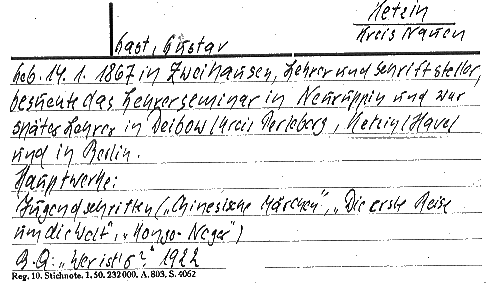 Ketzin
Kreis Nauen
Gast, Gustav
Geb. 14. 1. 1867 in Zweihausen, Lehrer und Schriftsteller,
besuchte das Lehrerseminar in Neuruppin und war
später Lehrer in Deibow/Kreis Perleberg, Ketzin/Havel
und in Berlin.
Hauptwerke:
Jugendschriften („Chinesische Märchen", „Die erste Reise
um die Welt", „Kongo-Neger")
B.Q.: „Wer ist's?" 1922
Reg. 10. Stichnote. 1. 50. 232000. A. 803, S. 4062